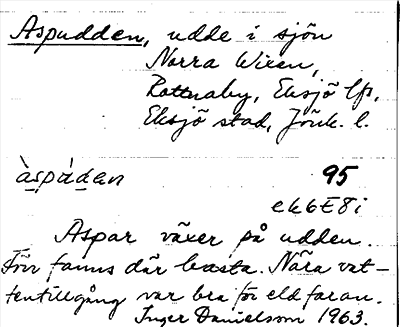 Aspudden, udde i sjön
Norra Wixen,
Rottnaby, Eksjö lfs,
Eksjö stad, Jönk. l.
àspádan 95
ek6E8i
Aspar växer på udden.
Förr fanns där basta. Nära vat-
tentillgång var bra för eldfaran.
Inger Danielsson 1963.